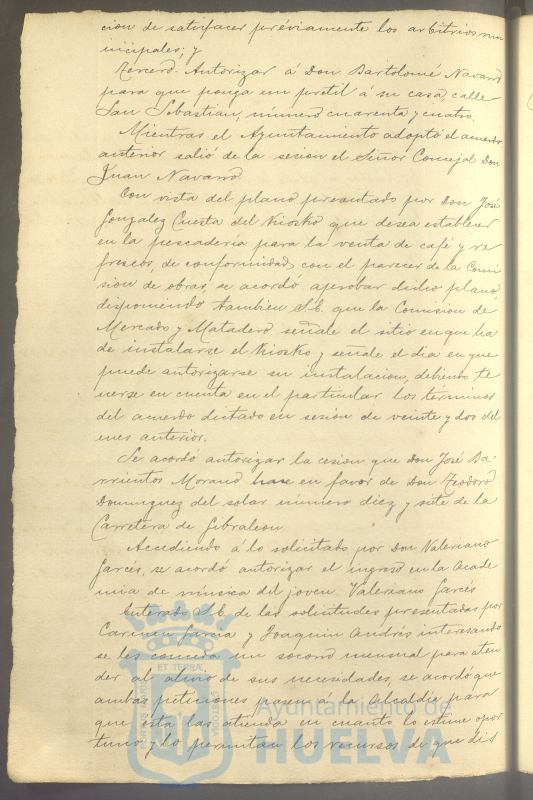 cion de satisfacer préviamente los arbitrios mu
nicipales; y
Tercero. Autorizar á Don Bartolomé Navarro
para que ponga un pretil á su casa, calle
San Sebastian, número cuarenta y cuatro.
Mientras el Ayuntamiento adoptó el acuerdo
anterior salió de la sesion el Señor Concejal Don
Juan Navarro.
Con vista del plano presentado por Don José
Gonzalez Cuesta del Kiosko que desea establecer
en la pescaderia para la venta de café y re
frescos, de conformidad con el parecer de la Comi
sion de obras, se acordó aprobar dicho plano,
disponiendo tambien S.E. que la Comision de
Mercado y Matadero señale el sitio en que ha
de instalarse el Kiosko y señale el dia en que
puede autorizarse su instalacion, debiendo te
nerse en cuenta en el particular los términos
del acuerdo dictado en sesion de veinte y dos del
mes anterior.
Se acordó autorizar la cesion que Don José Ba-
rrientos Morano hace en favor de Don Teodoro
Dominguez del solar número diez y siete de la
Carretera de Gibraleon
Accediendo á lo solicitado por Don Valeriano
Garcés, se acordó autorizar el ingreso en la Acade
mia de música del joven Valeriano Garcés
Enterado S.E. de las solicitudes presentadas por
Carmen Garcia y Joaquin Andrés interesando
se les conceda un socorro mensual para aten
der al alivio de sus necesidades, se acordó que
ambas peticiones pasen á la Alcaldía para
que esta las atienda en cuanto lo estime opor
tuno y lo permitan los recursos de que dis
ET TERRÆ
Ayuntamiento de
HUELVA